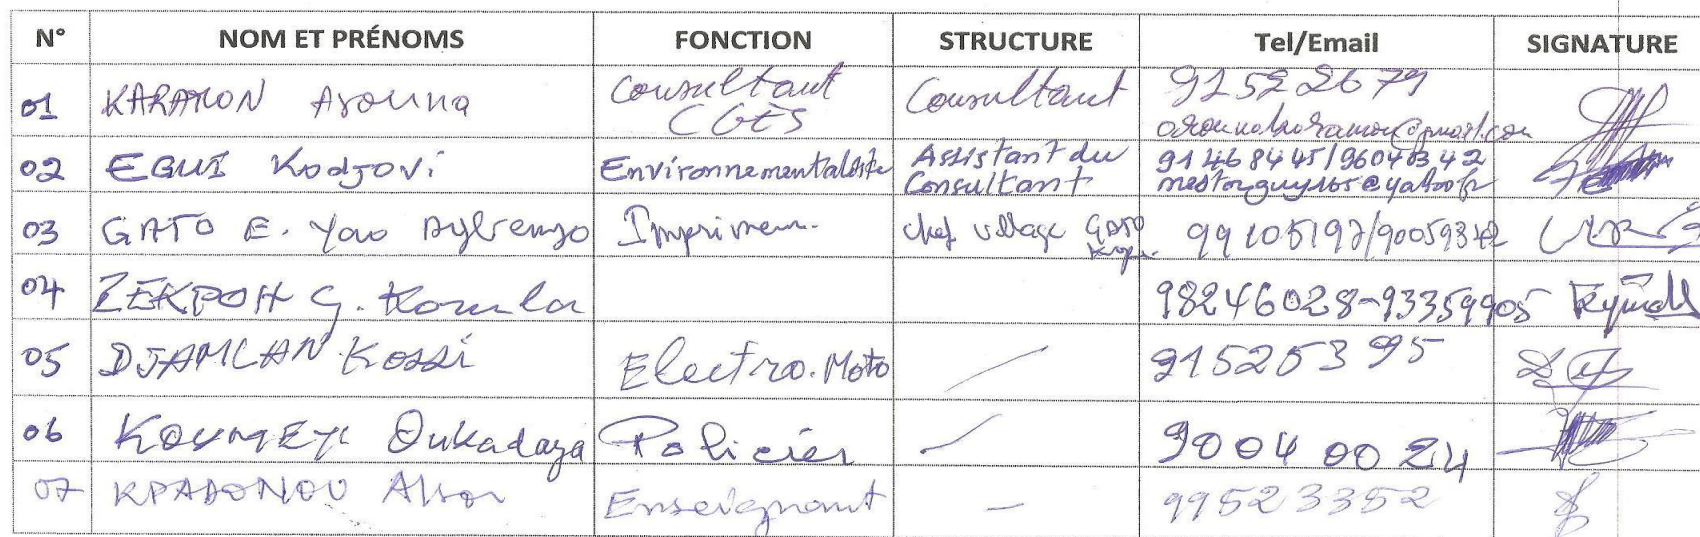 N° NOM ET PRÉNOMS FONCTION STRUCTURE Tel/Email SIGNATURE
01 KARAMON Arouna Consultant CGES Consultant 91522679
arounakaramon@gmail.com
02 EGUI Kodjovi Environnementaliste Assistant du Consultant 91468445/96048342
03 GATO E. Yao Imprimeur chef village GATO 99105197/90059342
04 ZEKPOH G. Komla 98246028-93359905
05 DJAMLAN Kossi Electro.Moto / 91525395
06 KOUMEYI Oukadaza Policier / 90040024
07 KPADONOU Enseignant - 99523352